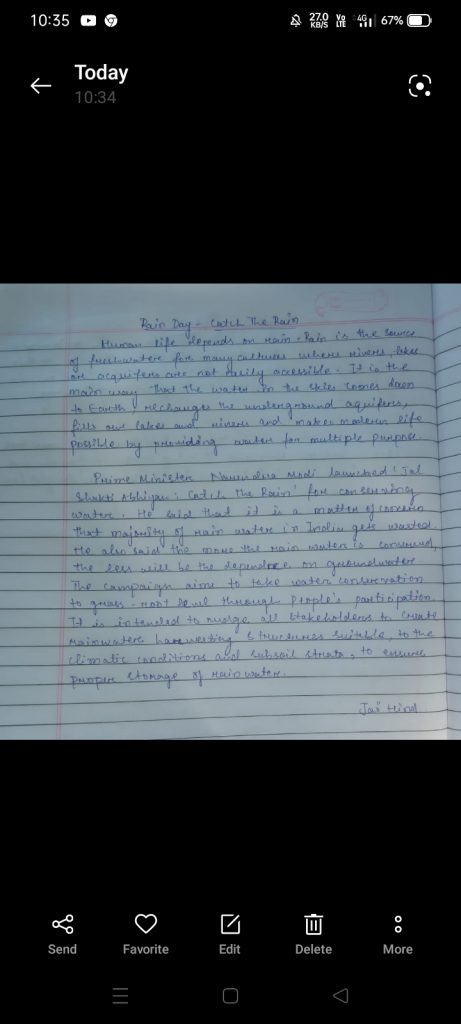 10:35
27.0 KB/S
Vo LTE
4G
67%
Today
10:34
Rain Day - Catch The Rain
Human life depends on rain. Rain is the source
of freshwater for many cultures where rivers, lakes
or acquifers are not easily accessible. It is the
main way that the water in the skies comes down
to Earth, rechanges the underground aquifers,
fills our lakes and rivers and makes modern life
possible by providing water for multiple purpose.
Prime Minister Narendra Modi launched 'Jal
Shakti Abhiyan: Catch The Rain' for conserving
water. He said that it is a matter of concern
that majority of rain water in India gets wasted.
He also said the more the rain water is conserved,
the less will be the dependence on groundwater
The campaign aims to take water conservation
to grass-root level through people's participation.
It is intended to nudge all stakeholders to create
rainwater harvesting structures suitable to the
climatic conditions and subsoil strata, to ensure
proper storage of rainwater.
Jai Hind
Send
Favorite
Edit
Delete
More